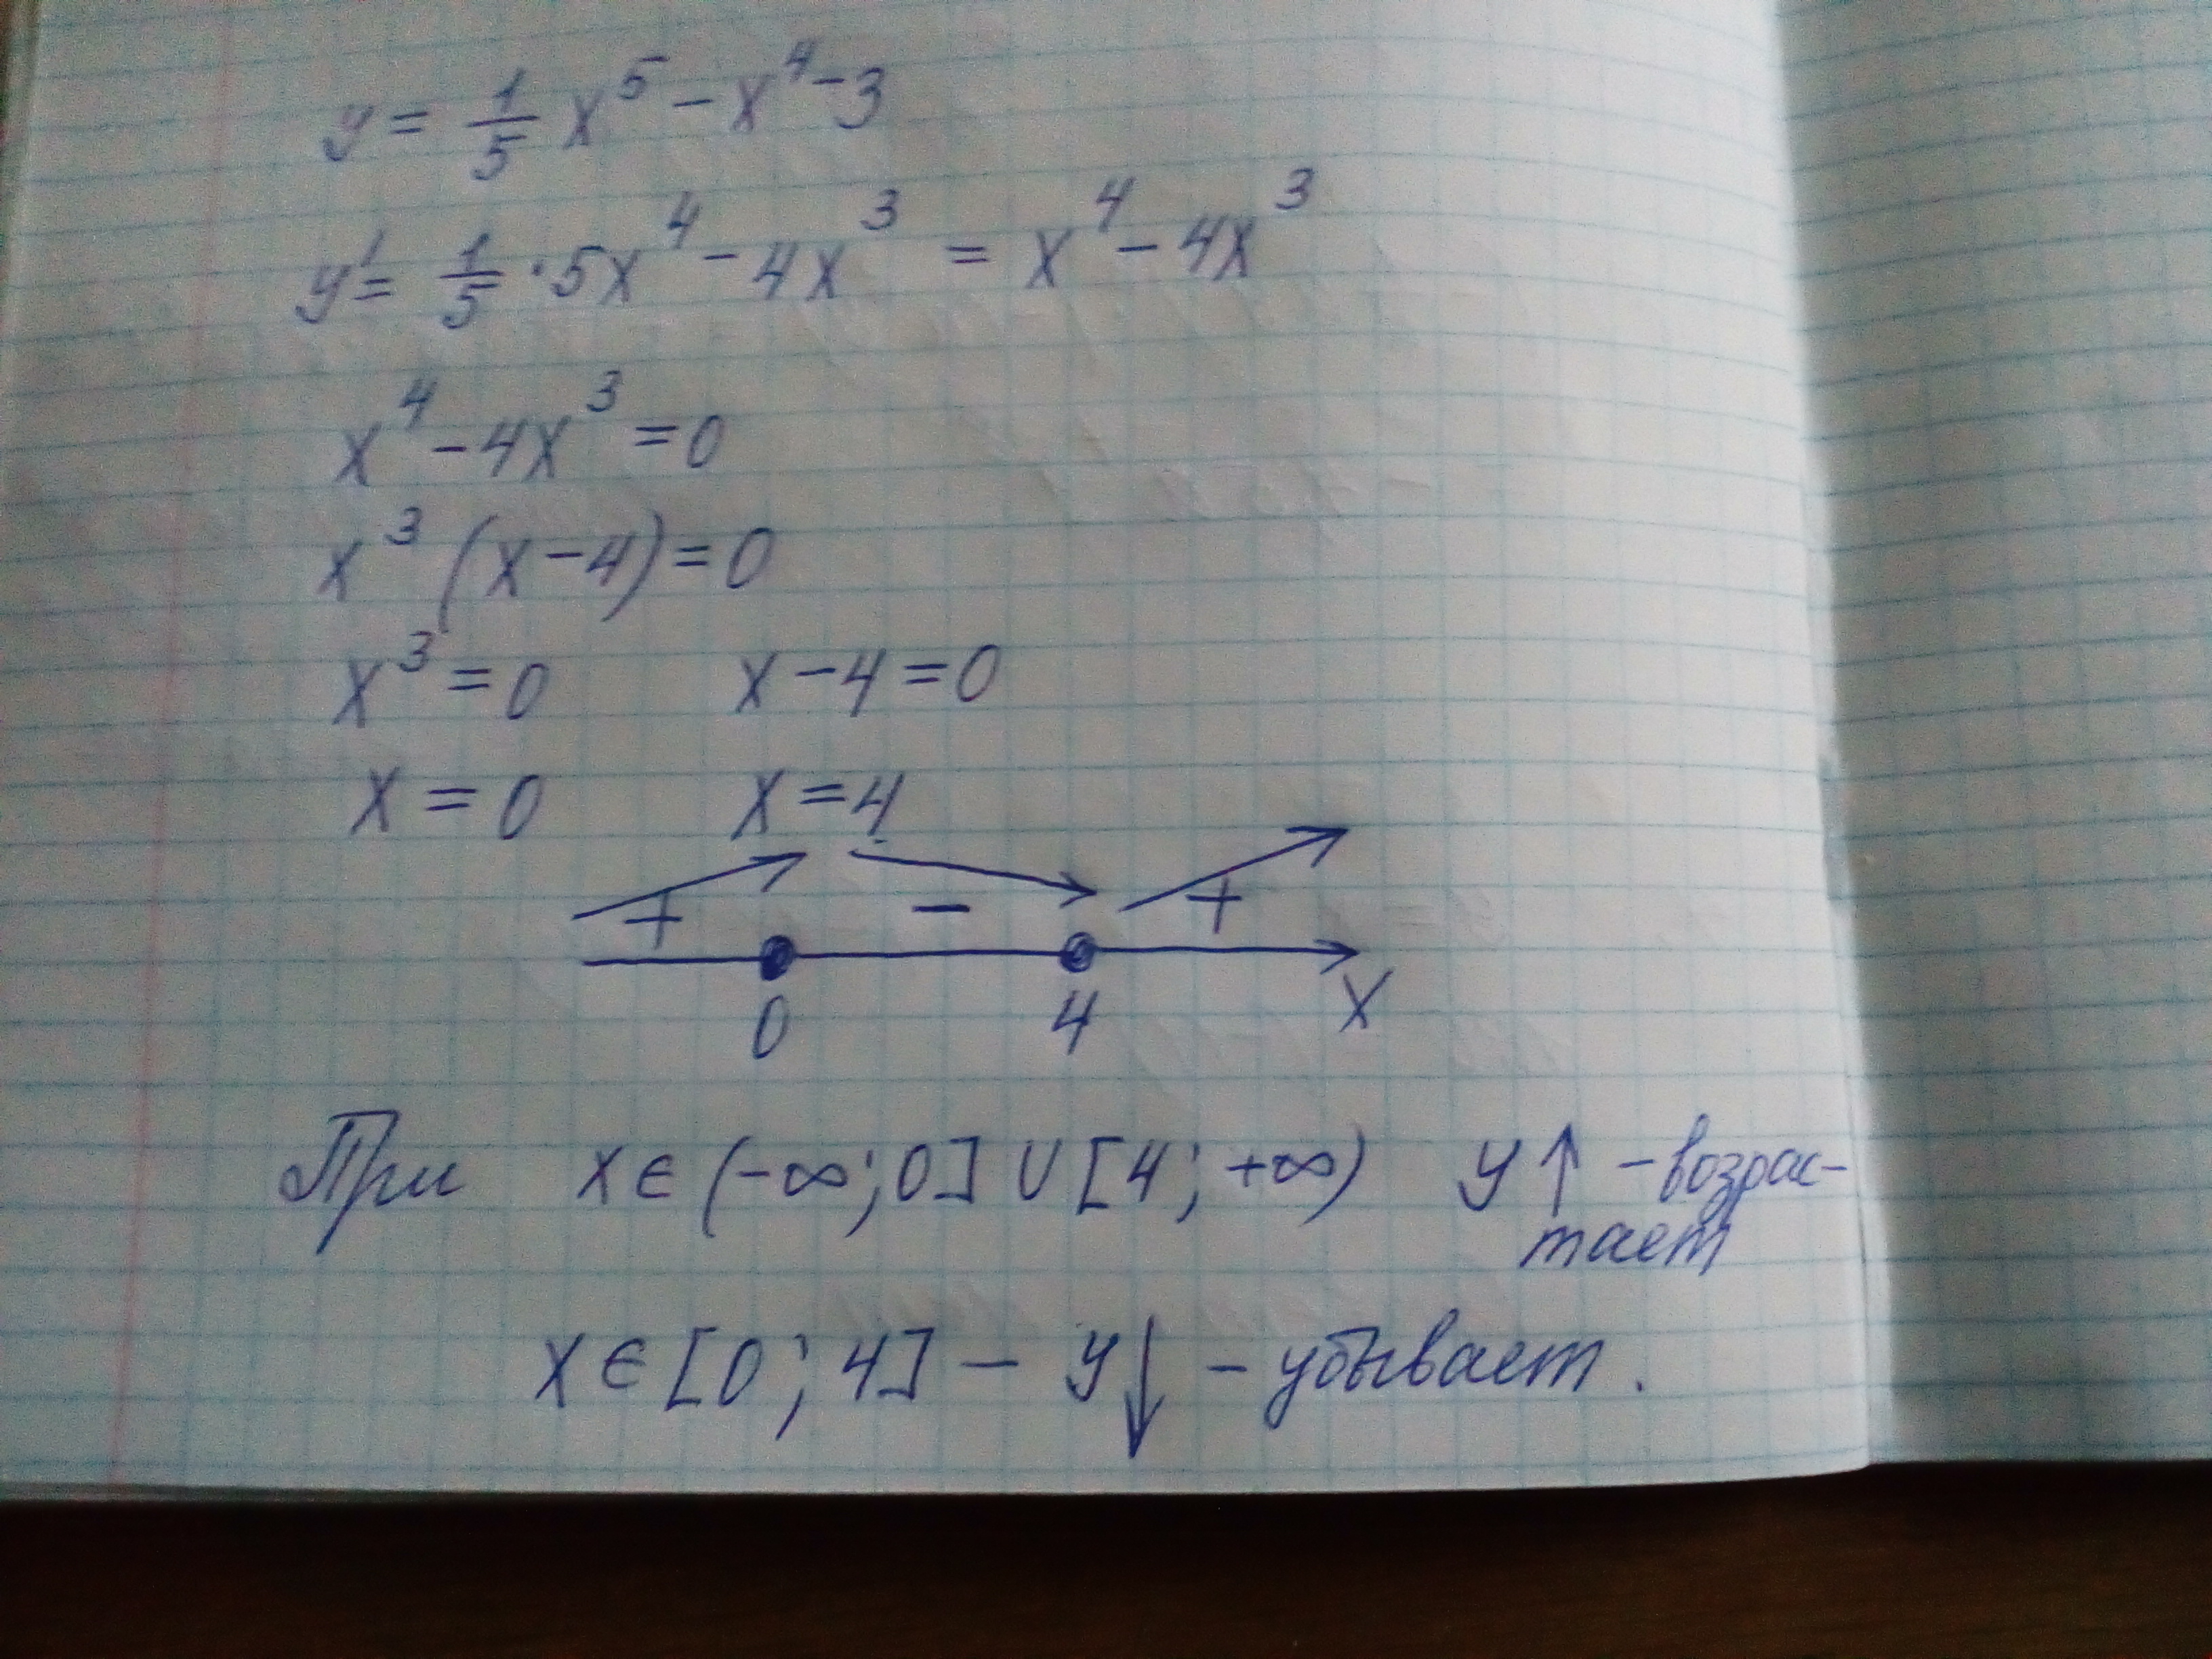 y = 1/5 x⁵ - x⁴ - 3
y' = 1/5 · 5x⁴ - 4x³ = x⁴ - 4x³
x⁴ - 4x³ = 0
x³ (x - 4) = 0
x³ = 0 x - 4 = 0
x = 0 x = 4
+ - +
0 4 X
При x ∈ (-∞; 0] ∪ [4; +∞) y ↑ - возрас-
тает
x ∈ [0; 4] - y ↓ - убывает.